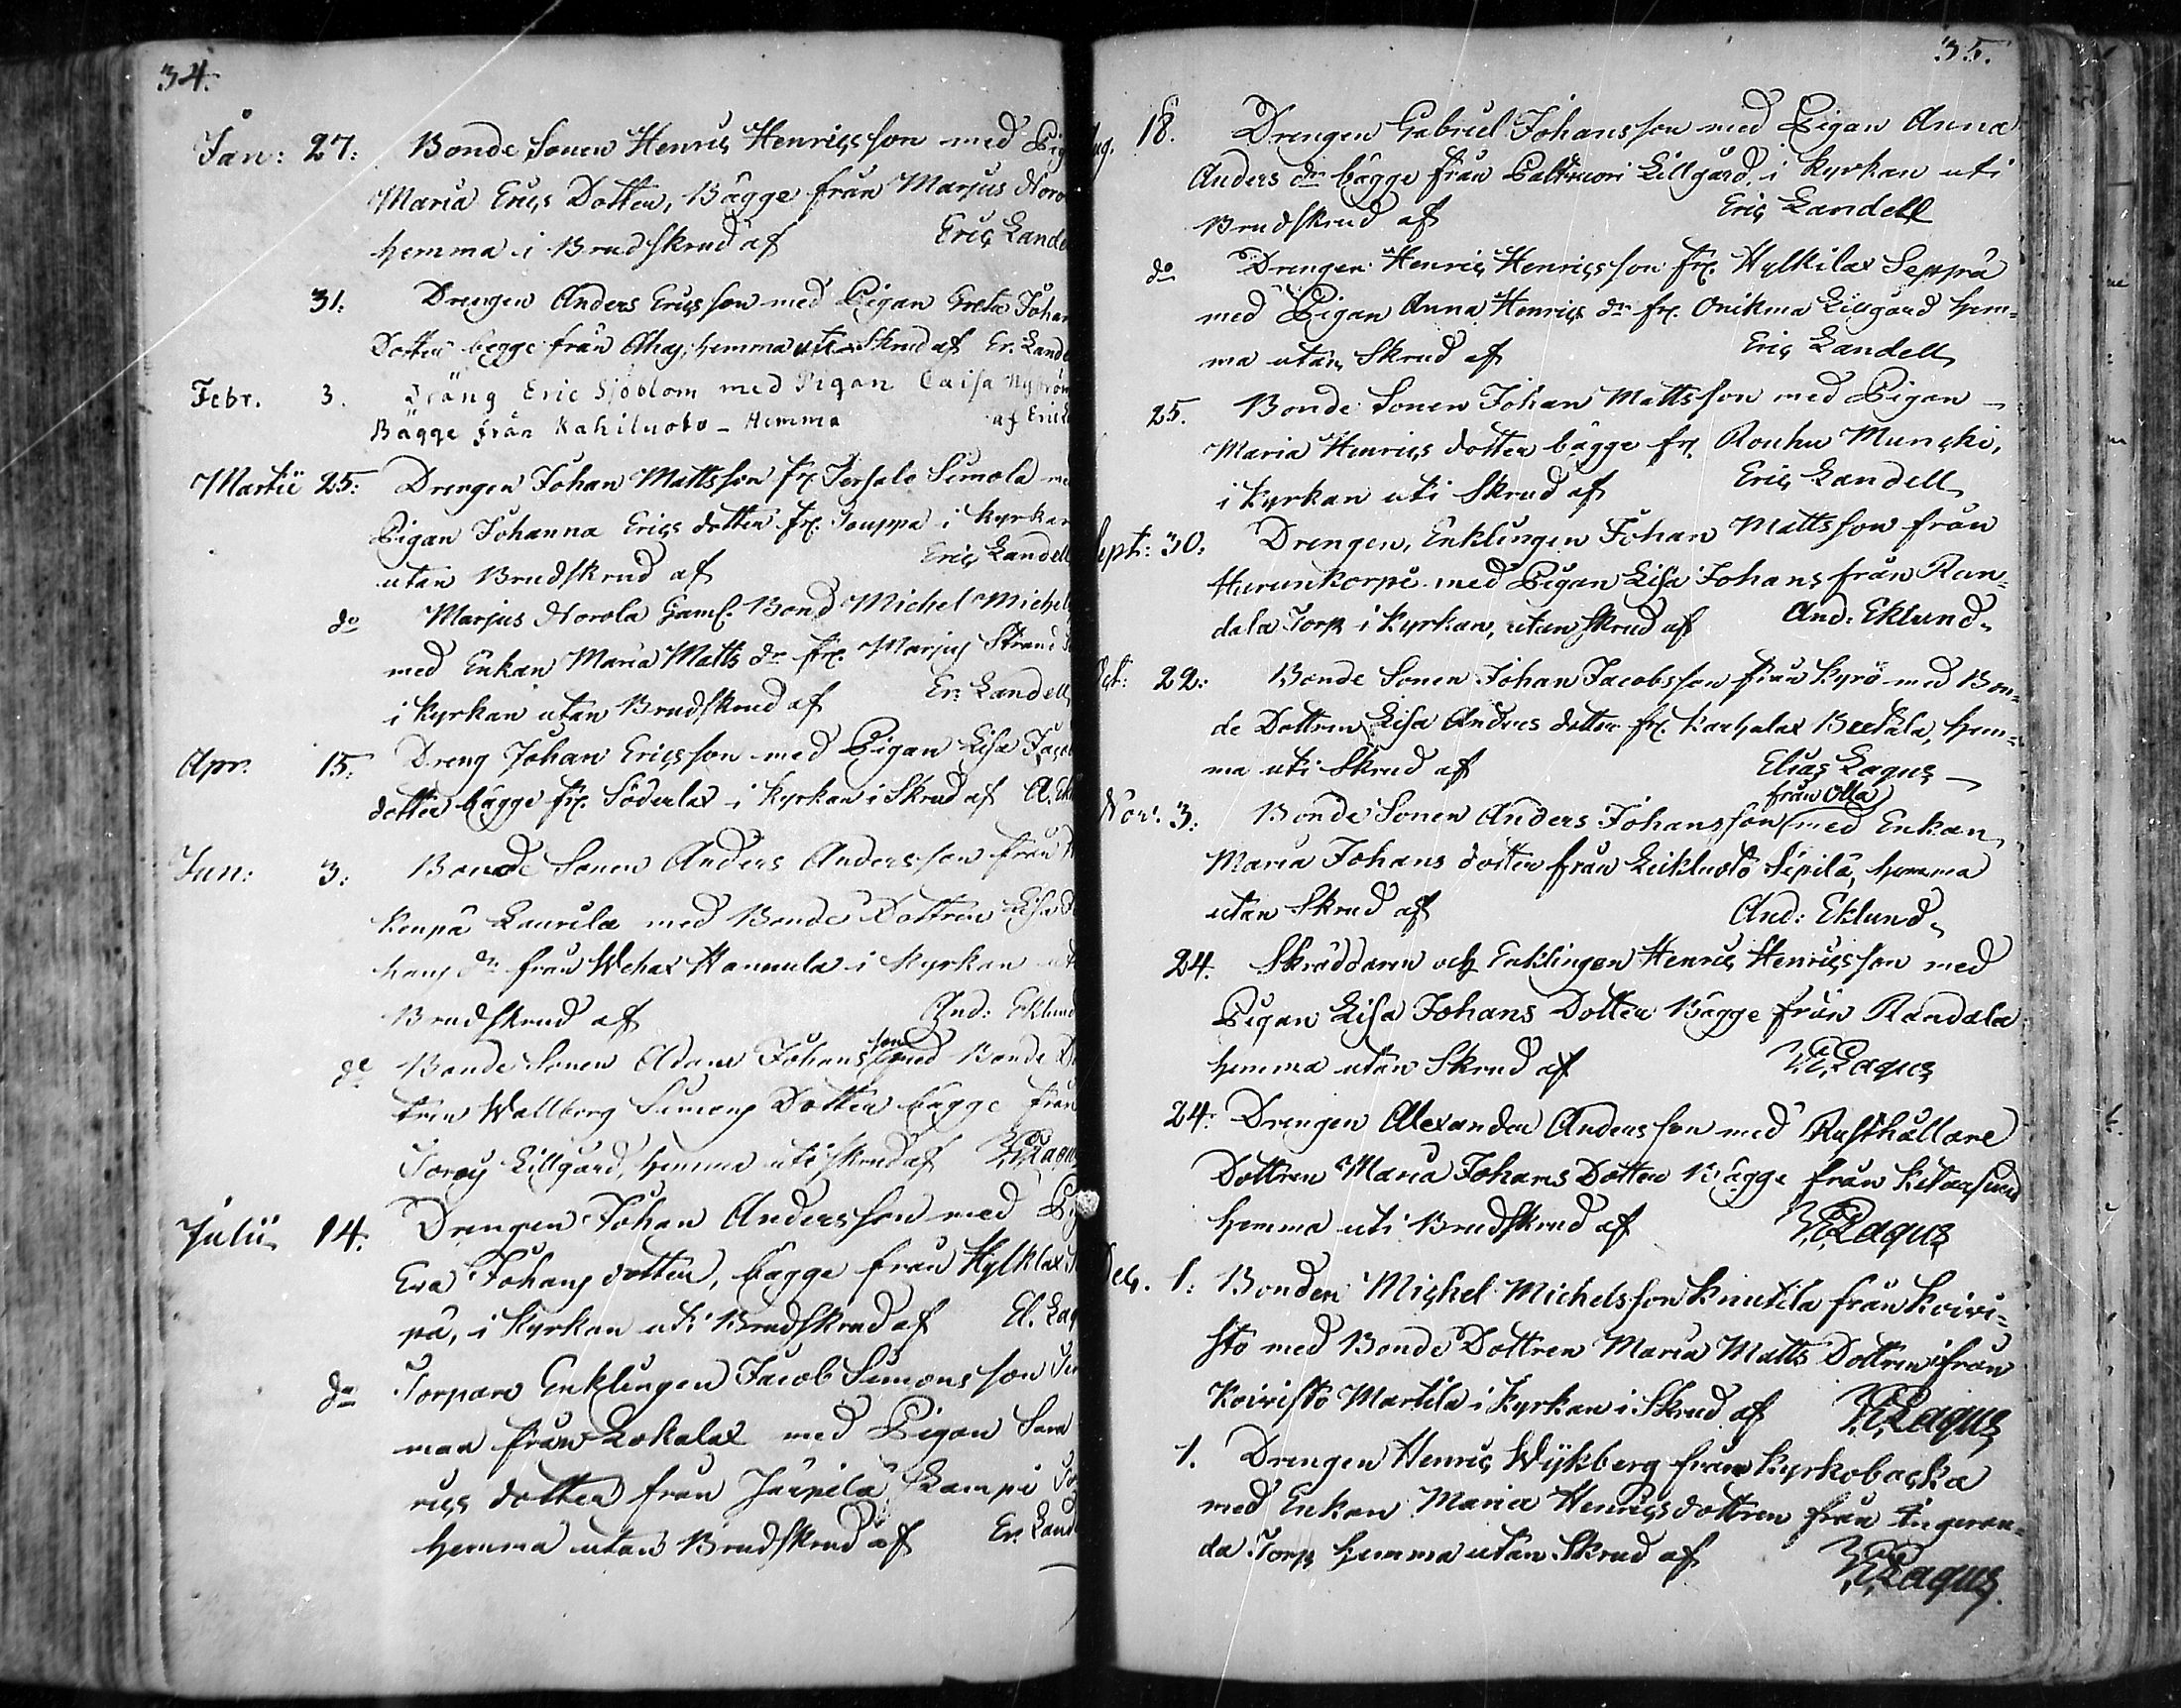 34.
Jan: 27: Bonde Sonen Henric Henricsson med Pig
Maria Erics Dotter, Bägge från Marjus Noro
hemma i Brudskrud af Eric Lande
31: Drengen Anders Ericsson med Pigan Greta Johan
Dotter begge från Ahaj, hemma uti Skrud af Er. Lande
Febr. 3. Dräng Eric Sjöblom med Pigan Caisa Nyström
Bägge från Kahiluoto - Hemma af Eric L
Martii 25: Drengen Johan Mattsson fr. Jersalo Simola me
Pigan Johanna Erics dotter fr. Jouppa i Kyrkan
utan Brudskrud af Eric Landell
do Marjus Norola Gaml. Bond Michel Michels
med Enkan Maria Matts dr fr. Marjus Strand
i Kyrkan utan Brudskrud af Er. Landell
Apr. 15: Dreng Johan Ericsson med Pigan Lisa Jacob
dotter bägge fr. Söderlax i Kyrkan i Skrud af A. Ekl
Jun: 3: Bonde Sonen Anders Andersson från
Kenpä Laurila med Bonde Dottren Lisa
hans dr från Wehax Hannula i Kyrkan ut
Brudskrud af And: Eklund
do Bonde Sonen Adam Johansson med Bonde D
tren Wallborg Simons Dotter bägge från
Sorois Lillgård, hemma uti skrud af Lagus
Julii 14. Drengen Johan Andersson med Pig
Eva Johans dotter, bägge från Hylklax S
pä, i Kyrkan uti Brudskrud af El. Lag
do Torpare Enklingen Jacob Simonsson
man från Lokalax med Pigan Sara
rics dotter från Järpilä Kampi
hemma utan Brudskrud af Er. Land
35.
Aug. 18. Drengen Gabriel Johansson med Pigan Anna
Anders dr bägge från Paltvuori Lillgård, i Kyrkan uti
Brudskrud af Eric Landell
do Drengen Henric Henricsson fr. Hylkilax Seppä
med Pigan Anna Henrics dr fr. Onikma Lillgård hem=
ma utan Skrud af Eric Landell
25. Bonde Sonen Johan Mattsson med Pigan -
Maria Henrics dotter bägge fr. Rouhu Muncki,
i Kyrkan uti Skrud af Eric Landell
Sept: 30: Drengen, Enklingen Johan Mattsson från
Hurunkorpi med Pigan Lisa Johans från Ran=
dala Torp i Kyrkan, utan skrud af And: Eklund
Oct: 22: Bonde Sonen Johan Jacobsson från Kyrö med Bon=
de Dottren Lisa Anders dotter fr. Karhalax Bertula, hem=
ma uti Skrud af Elias Lagus
Nov: 3: Bonde Sonen Anders Johansson från Olla med Enkan
Maria Johans dotter från Leikluoto Sipilä, hemma
utan Skrud af And: Eklund
24. Skräddaren och Enklingen Henric Henricsson med
Pigan Lisa Johans Dotter Bägge från Randala
hemma utan Skrud af Lagus
24. Drengen Alexander Andersson med Rusthållare
Dottren Maria Johans Dotter Bägge från Ketarsund
hemma uti Brudskrud af Lagus
Dec. 1: Bonden Michel Michelsson Knutila från Koivi=
sto med Bonde Dottren Maria Matts Dottren från
Koivisto Martila i Kyrkan i Skrud af Lagus
1. Drengen Henric Wijkberg från Kyrkobacka
med Enkan Maria Henricsdottren från Ingeran=
da Torp hemma utan Skrud af Lagus